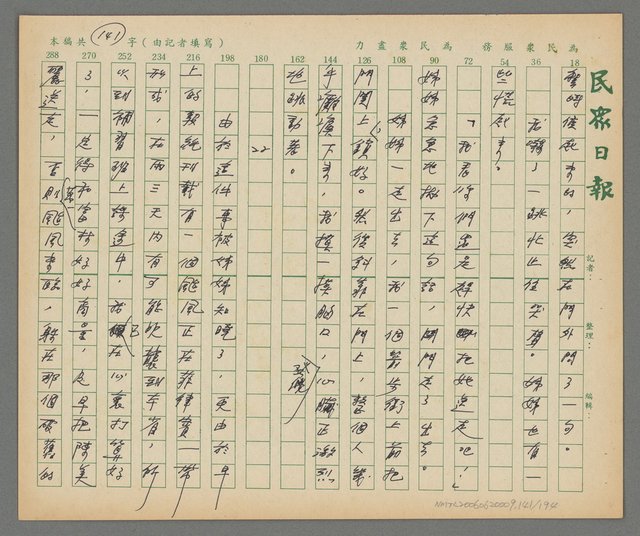 民眾日報
為民眾服務 為民眾盡力
字(由記者填寫) 本編共 141
記者:
整理:
編輯:
288 270 252 234 216 198 180 162 144 126 108 90 72 54 36 18
聲時候起來的,突然在門外問了一句。
我嚇了一跳,忙住哭聲。姊姊也有一
些慌起來。
「我你們還是趕快把她送走吧!」
姊姊急急地撇下這句話,門走了出去。
姊姊一走出去,我一個箭步衝了前把
門關上、鎖好。然後斜靠在門上,整個人幾
乎癱瘓下來。我摸摸胸口,心臟正激烈
地跳動著。
22
由於這件事被姊姊知曉,更由於早
上的報紙刊載有一個颱風正在菲律賓一帶
形成,在兩三天內有可能吹襲到本省,所
以到補習班上完課中,我已在心裏打算好
了,一定得和當村好好商量,及早把陳美
麗送走,否則萬一颱風來臨,躲在那個破舊的
NMTL20060620009,141/194